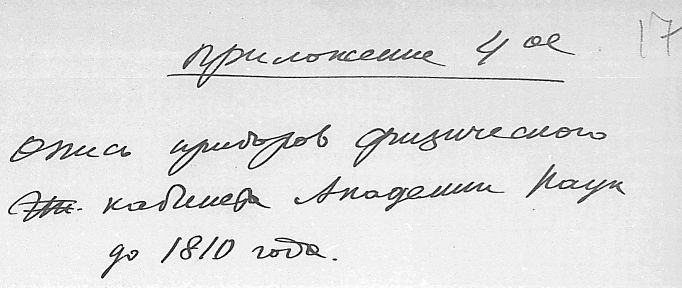 17
Приложение 4ое
Опись приборов физического
кабинета Академии Наук
до 1810 года.